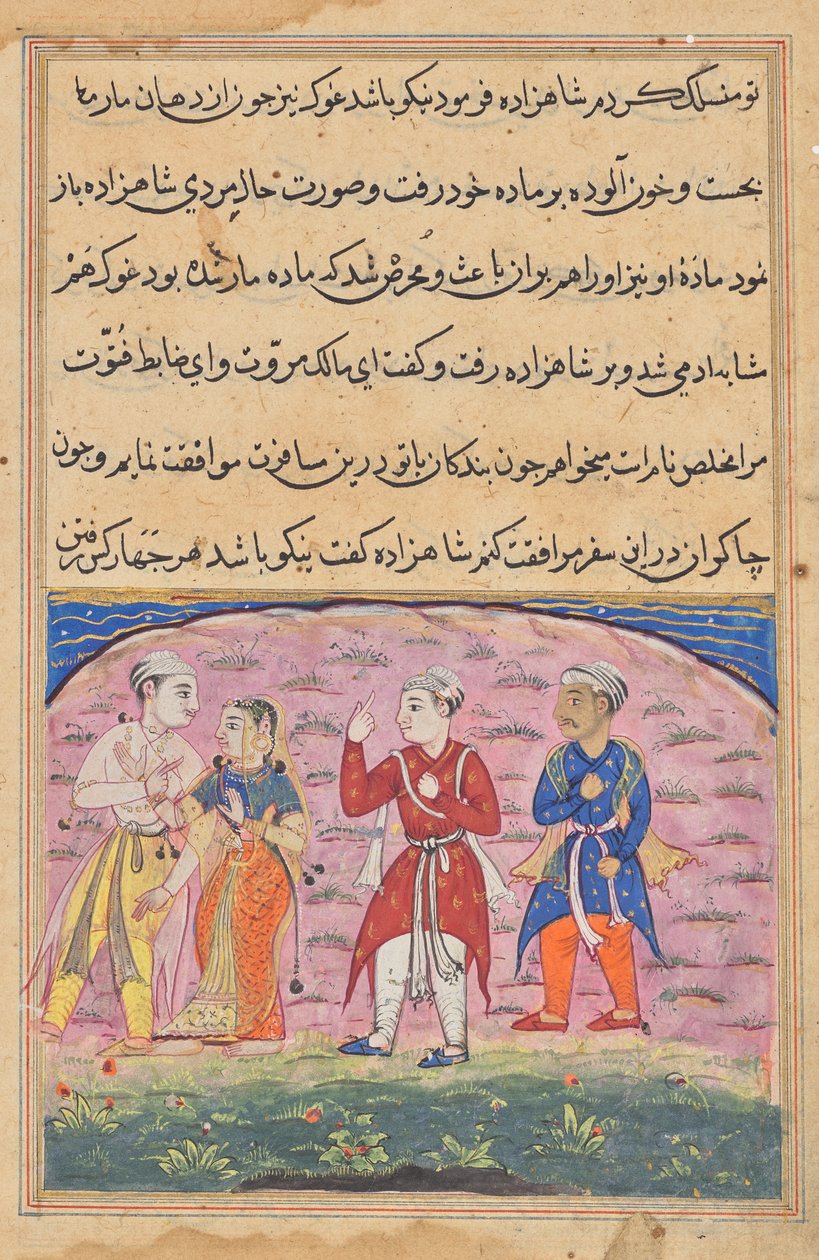 تو منسلک کردم شاهزاده فرمود نیکو باشد غوک نیز جون از دهان مار رها
بجست و خون آلوده بر ماده خود رفت و صورت حال مردي شاهزاده باز
نمود مادَهٔ او نیز او را هم بران باعث و محرض شد که ماده مار شده بود غوک هَمْ
مشابه ادمي شد و بر شاهزاده رفت و کفت اي مالک مروّت و اي ضابط فُتوّت
مرا مخلص نام است میخواهم جون بندکان با تو درین مسافرت موافقت نمایم و جون
چاکران در این سفر مرافقت کنم شاهزاده کفت نیکو باشد هر جَهار کس رفتن